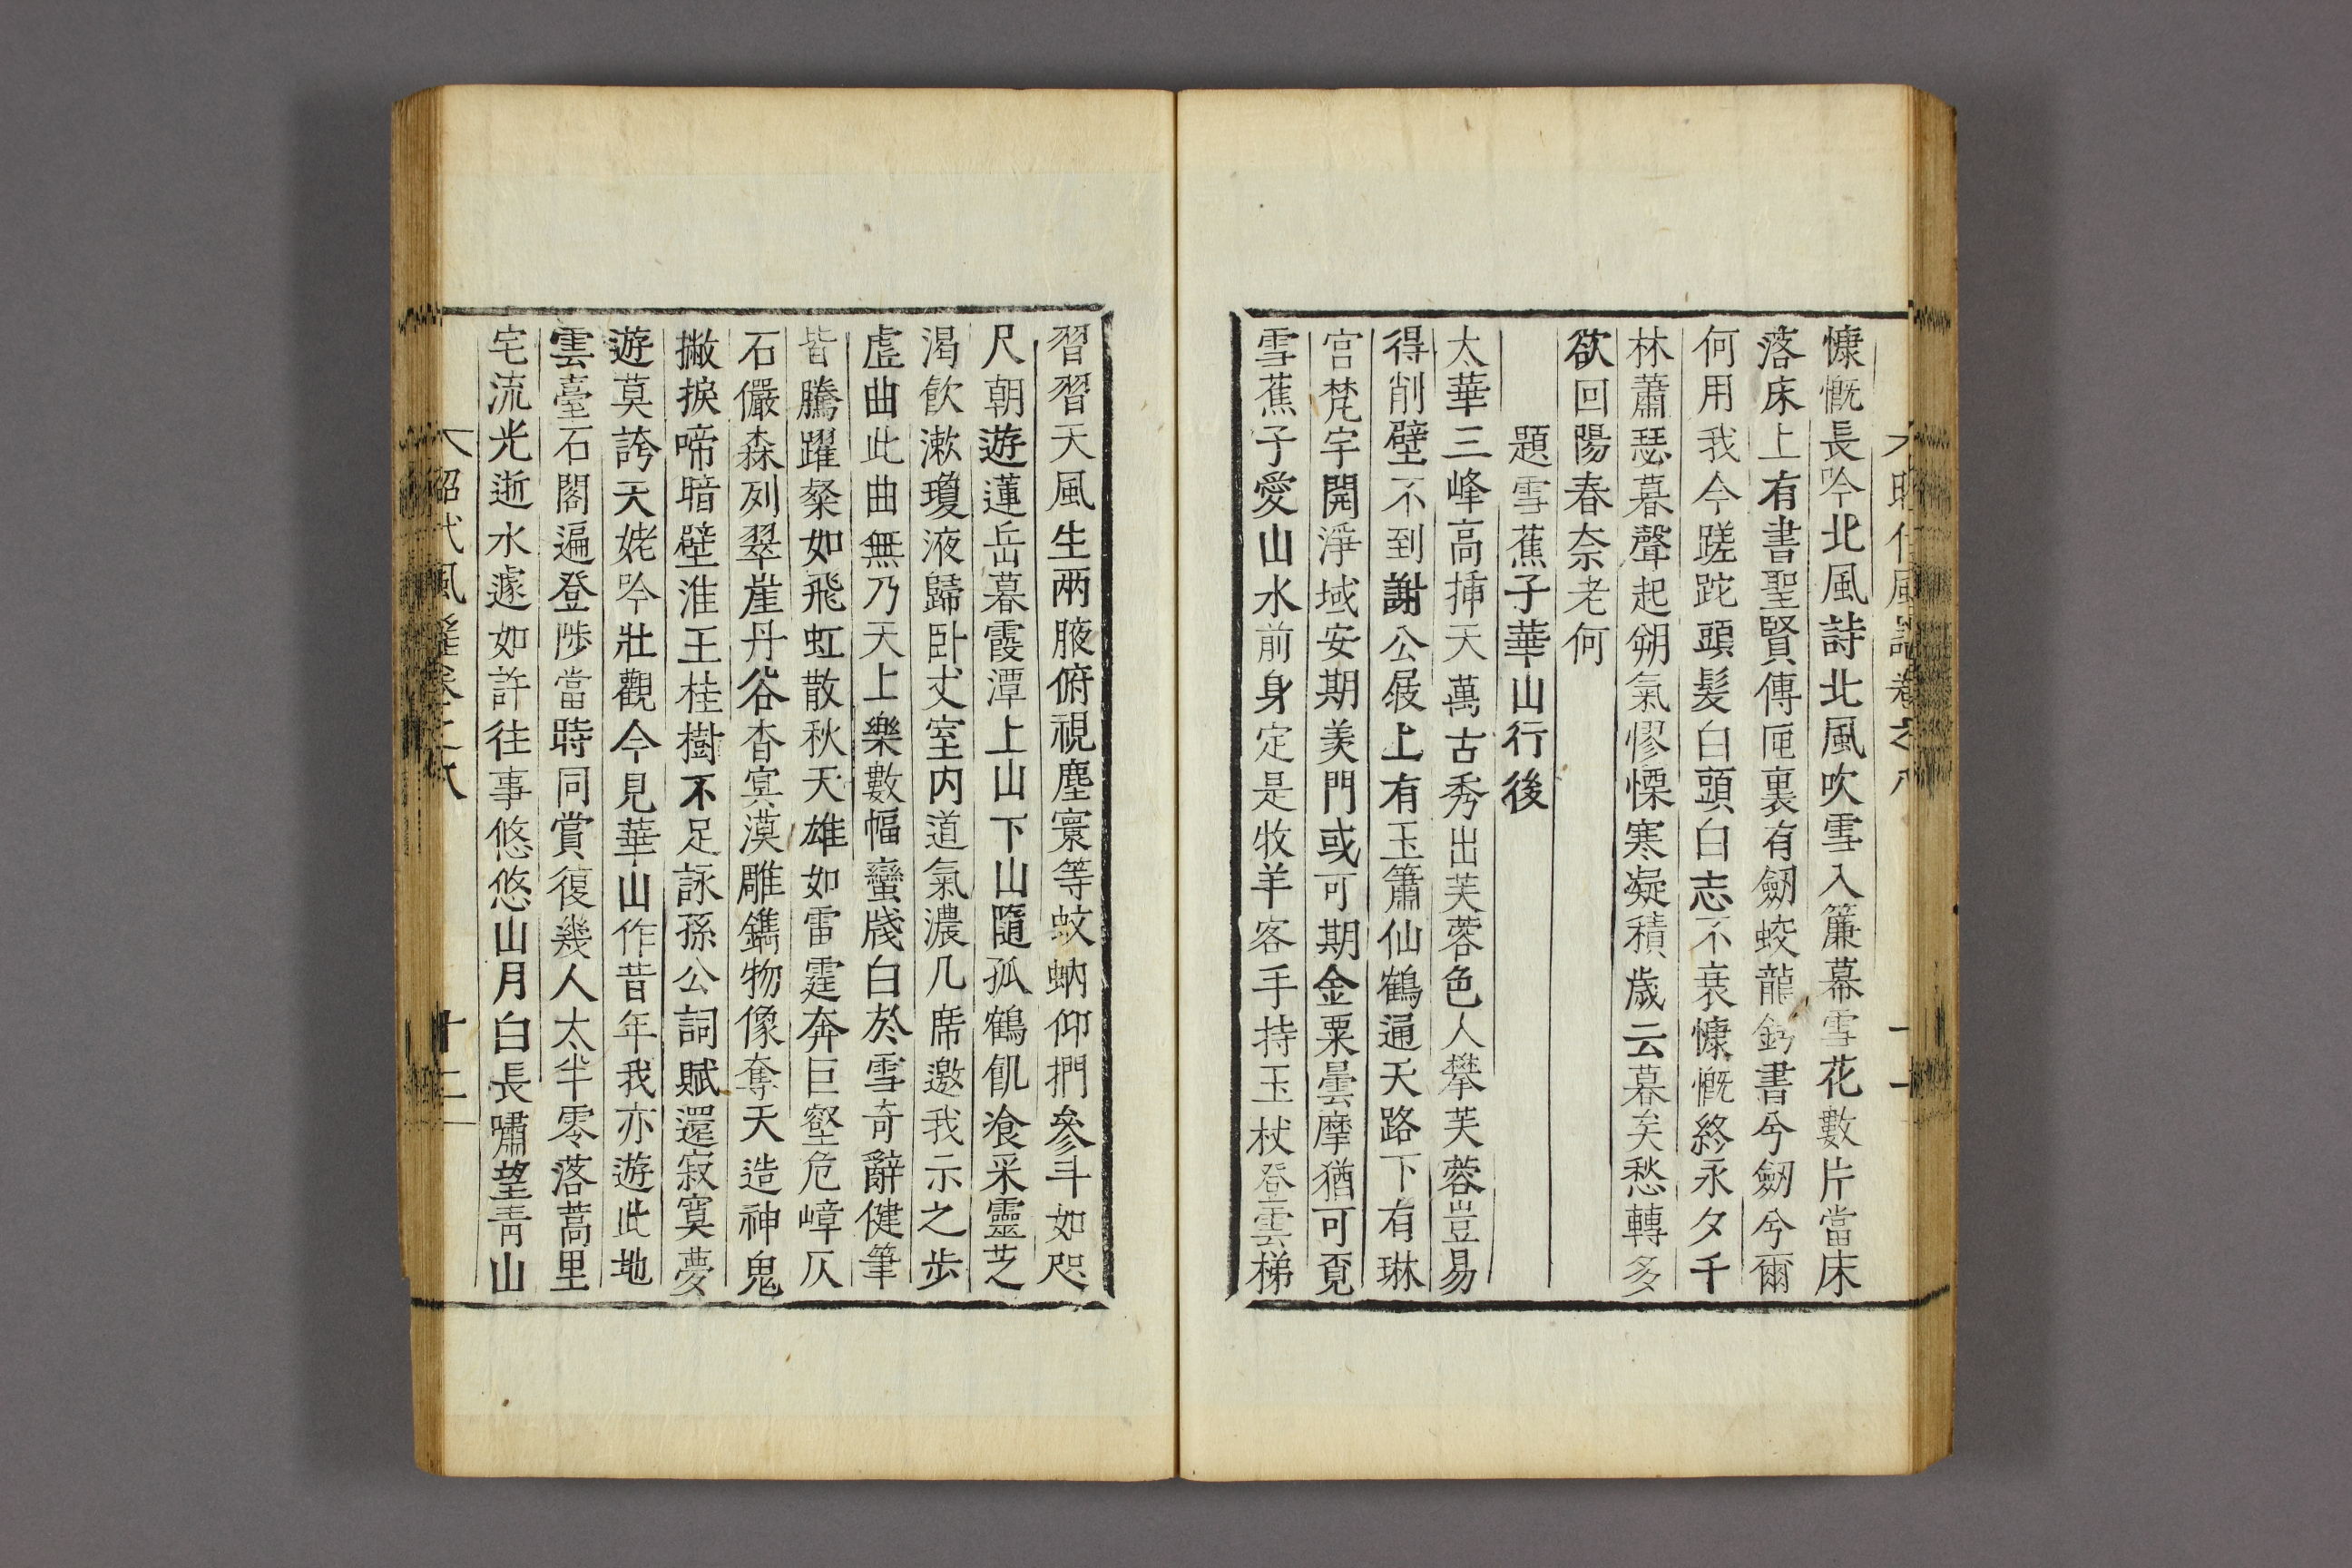 慷慨長吟北風詩北風吹雪入簾幕雪花數片當床
落床上有書聖賢傳匣裏有劒蛟龍鈣書兮劒兮爾
何用我今蹉跎頭髮白頭白志不衰慷慨終永夕千
林蕭瑟暮聲起朔氣憀慄寒凝積歲云暮矣愁轉多
欲回陽春奈老何
題雪蕉子華山行後
太華三峰高挿天萬古秀出芙蓉色人攀芙蓉豈易
得削壁不到謝公屐上有玉簫仙鶴通天路下有琳
宮梵宇開淨域安期羨門或可期金粟曇摩猶可覔
雪蕉子愛山水前身定是牧羊客手持玉杖登雲梯
習習天風生兩腋俯視塵寰等蚊蚋仰捫參斗如咫
尺朝遊蓮岳暮霞潭上山下山隨孤鶴飢飡采靈芝
渴飲漱瓊液歸卧丈室内道氣濃几席邀我示之步
虛曲此曲無乃天上樂數幅蠻牋白於雪奇辭健筆
皆騰躍粲如飛虹散秋天雄如雷霆奔巨壑危嶂仄
石儼森列翠崖丹谷杳冥漠雕鐫物像奪天造神鬼
撇捩啼暗壁淮王桂樹不足詠孫公詞賦還寂寞夢
遊莫誇天姥吟壯觀今見華山作昔年我亦遊此地
雲臺石閣遍登陟當時同賞復幾人太半零落蒿里
宅流光逝水遽如許往事悠悠山月白長嘯望青山
昭代風謠卷之八 十二